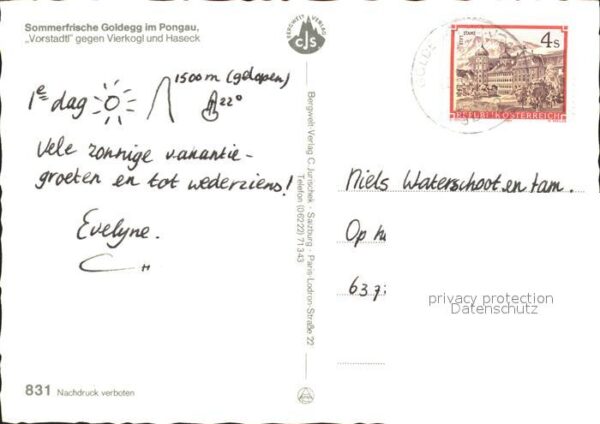 Sommerfrische Goldegg im Pongau,
„Vorstadtl" gegen Vierkogl und Haseck
BERGWELT VERLAG
cJs
1e dag
1500m (gelopen)
22°
Vele zonnige vakantie-
groeten en tot wederziens!
Evelyne.
831 Nachdruck verboten
Bergwelt-Verlag C. Jurischek · Salzburg · Paris-Lodron-Straße 22
Telefon (06222) 71343
STIFT STAMS
4s
REPUBLIK ÖSTERREICH
GOLDE
Niels Waterschoot en fam.
Op h
637
privacy protection
Datenschutz